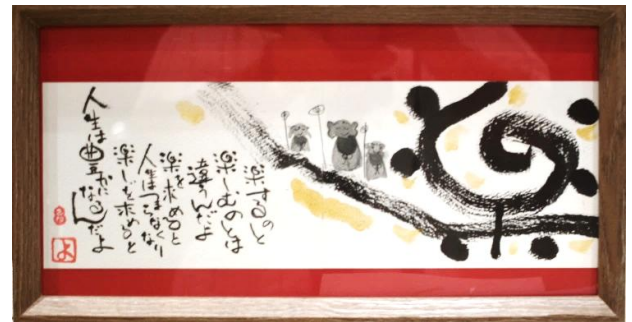 楽するのと
楽しむのとは
違うんだよ
楽を求めると
人生はつまらなくなり
楽しさを求めると
人生は豊かになるんだよ
よ